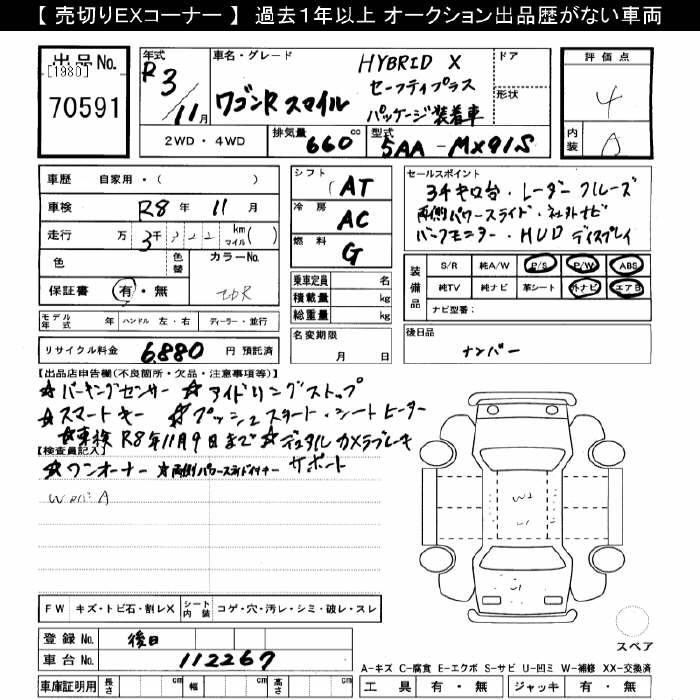 【 売切りEXコーナー 】 過去1年以上 オークション出品歴がない車両
出品No.
[1980]
70591
年式
R3/11月
車名・グレード
ワゴンR スマイル
HYBRID X
セーフティプラス
パッケージ装着車
ドア
形状
評価点
4
内装
A
2WD ・ 4WD
排気量 660 cc
型式 5AA - MX91S
車歴 自家用・( )
車検 R8年 11月
走行 万 3千 km マイル( )
色 色替 カラーNo.
ZDR
保証書 有・無
モデル年式 年 ハンドル 左・右 ディーラー・並行
リサイクル料金 6,880 円 預託済
シフト AT
冷房 AC
燃料 G
乗車定員 名
積載量 kg
総重量 kg
名変期限
月 日
セールスポイント
3千キロ台・レーダークルーズ
両側パワースライド・社外ナビ
バックモニター・HUDディスプレイ
装備品
S/R 純A/W P/S P/W ABS
純TV 純ナビ 革シート 外ナビ エアB
ナビ型番:
後日品
ナンバー
【出品店申告欄(不良箇所・欠品・注意事項等)】
☆パーキングセンサー ☆アイドリングストップ
☆スマートキー ☆プッシュスタート・シートヒーター
☆車検R8年11月9日まで☆デュアルカメラブレーキ
サポート
【検査員記入】
☆ワンオーナー ☆両側パワースライド付キー
A
W2
U1
U1
FW キズ・トビ石・割レX シート内装 コゲ・穴・汚レ・シミ・破レ・スレ
登録No. 後日
車台No. 112267
車庫証明用 長さ cm 幅 cm 高さ cm
スペア
A-キズ C-腐食 E-エクボ S-サビ U-凹ミ W-補修 XX-交換済
工具 有・無 ジャッキ 有・無